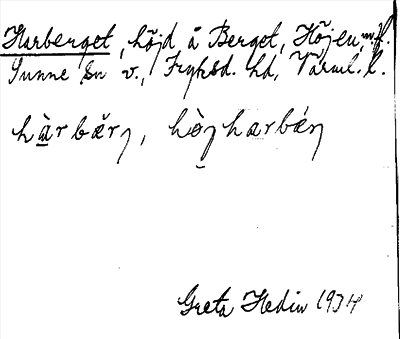 Harberget, höjd å Berget, Höjen, m.fl.
Sunne sn v., Fryksd. hd, Värml. l.
hàrbǽrj, hòjharbǽrj
Greta Hedin 1934